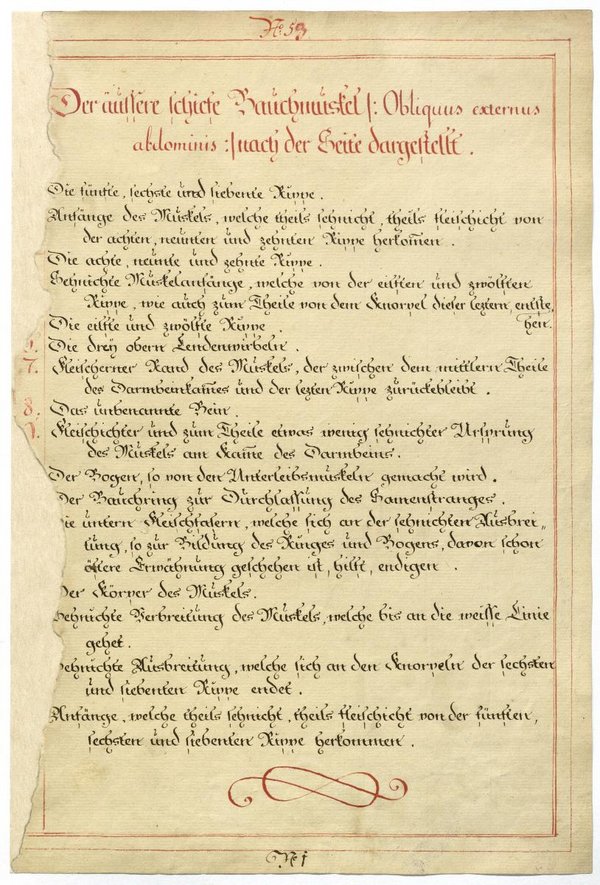 No. 53
Der äussere schiefe Bauchmuskel /: Obliquus externus
abdominis :/ nach der Seite dargestellt.
Die fünfte, sechste und siebente Rippe.
Anfänge des Muskels, welche theils sehnicht, theils fleischicht von
der achten, neunten und zehnten Rippe herkom̄en.
Die achte, neunte und zehnte Rippe.
Sehnichte Muskelanfänge, welche von der eilften und zwölften
Rippe, wie auch zum Theile von dem Knorpel dieser leztern, entste,
hen.
Die eilfte und zwölfte Rippe.
Die drey obern Lendenwirbeln.
7. Fleischerner Rand des Muskels, der zwischen dem mittlern Theile
des Darmbeinkam̄es und der lezten Rippe zurückbleibt.
8. Das unbenannte Bein.
Fleischichter und zum Theile etwas wenig sehnichter Ursprung
des Muskels am Kam̄e des Darmbeins.
Der Bogen, so von den Unterleibsmuskeln gemacht wird.
Der Bauchring zur Durchlassung des Samenstranges.
Die untern Fleischfasern, welche sich an der sehnichten Ausbrei„
tung, so zur Bildung des Ringes und Bogens, davon schon
öftere Erwähnung geschehen ist, hilft, endigen.
Der Körper des Muskels.
Sehnichte Verbreitung des Muskels, welche bis an die weisse Linie
gehet.
Sehnichte Ausbreitung, welche sich an den Knorpeln der sechsten
und siebenten Rippe endet.
Anfänge, welche theils sehnicht, theils fleischicht von der fünften,
sechsten und siebenten Rippe herkommen.
No. 1